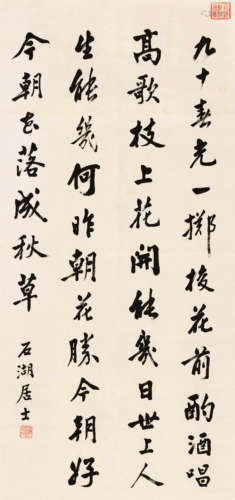 九十春光一擲梭花前酌酒唱
高歌枝上花開能幾日世上人
生能幾何昨朝花勝今朝好
今朝花落成秋草
石湖居士